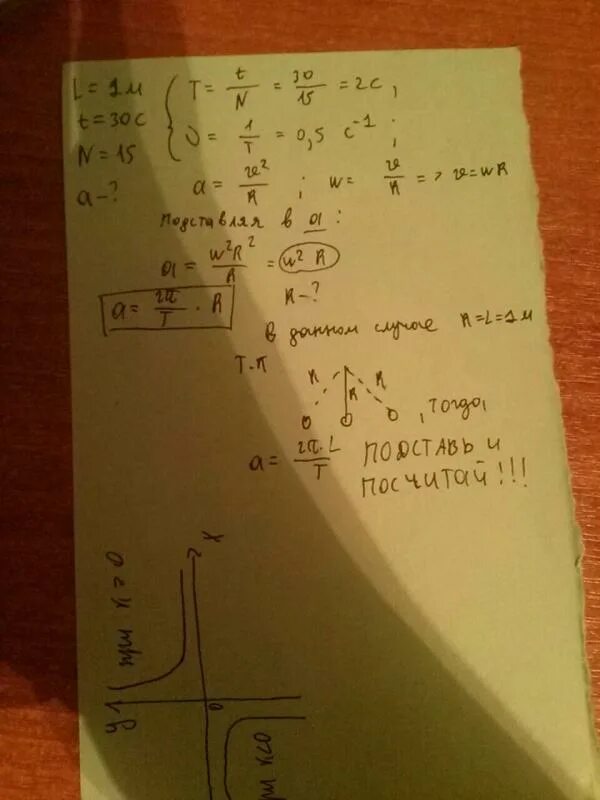 L = 1м
t = 30с
N = 15
a - ?
T = t/N = 30/15 = 2с,
υ = 1/T = 0,5 с⁻¹;
a = v²/R ; w = v/R => v = wR
подставляя в a :
a = w²R²/R = w² R
R - ?
a = 2π/T · R
в данном случае R = L = 1м
т.к
R R R
, тогда,
a = 2π·L/T
ПОДСТАВЬ И
ПОСЧИТАЙ!!!
x
y
0
при k > 0
при k<0